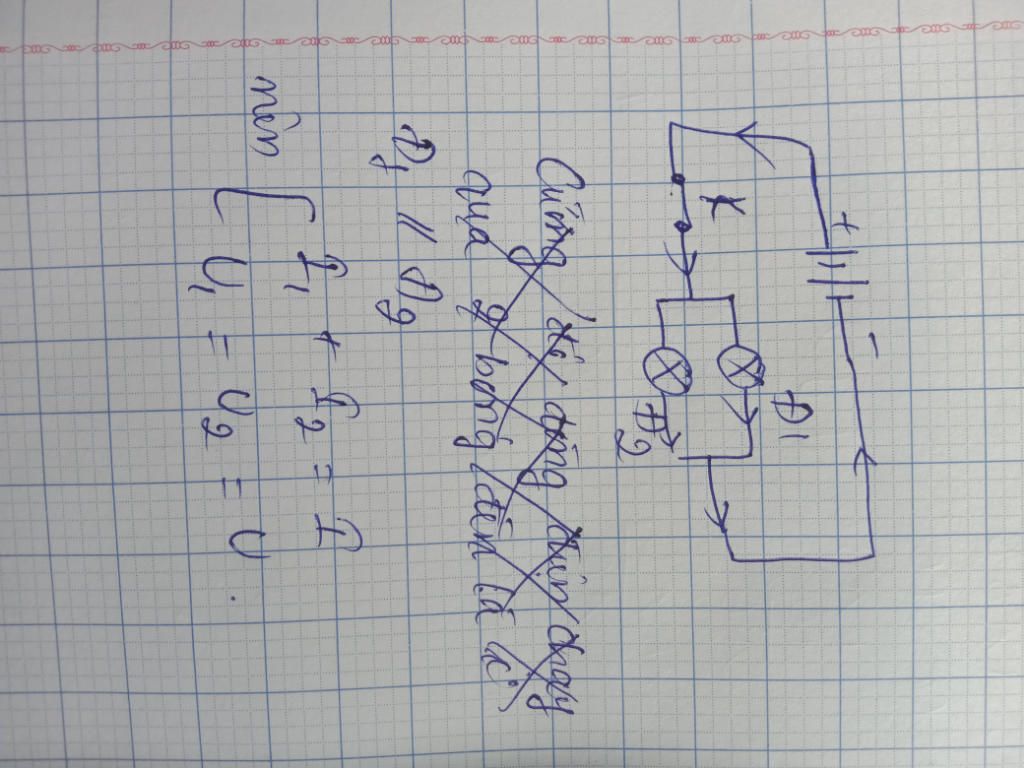 + -
K
Đ1
Đ2
Cường độ dòng điện chạy
qua 2 bóng đèn là
Đ1 // Đ2
nên { I1 + I2 = I
U1 = U2 = U.